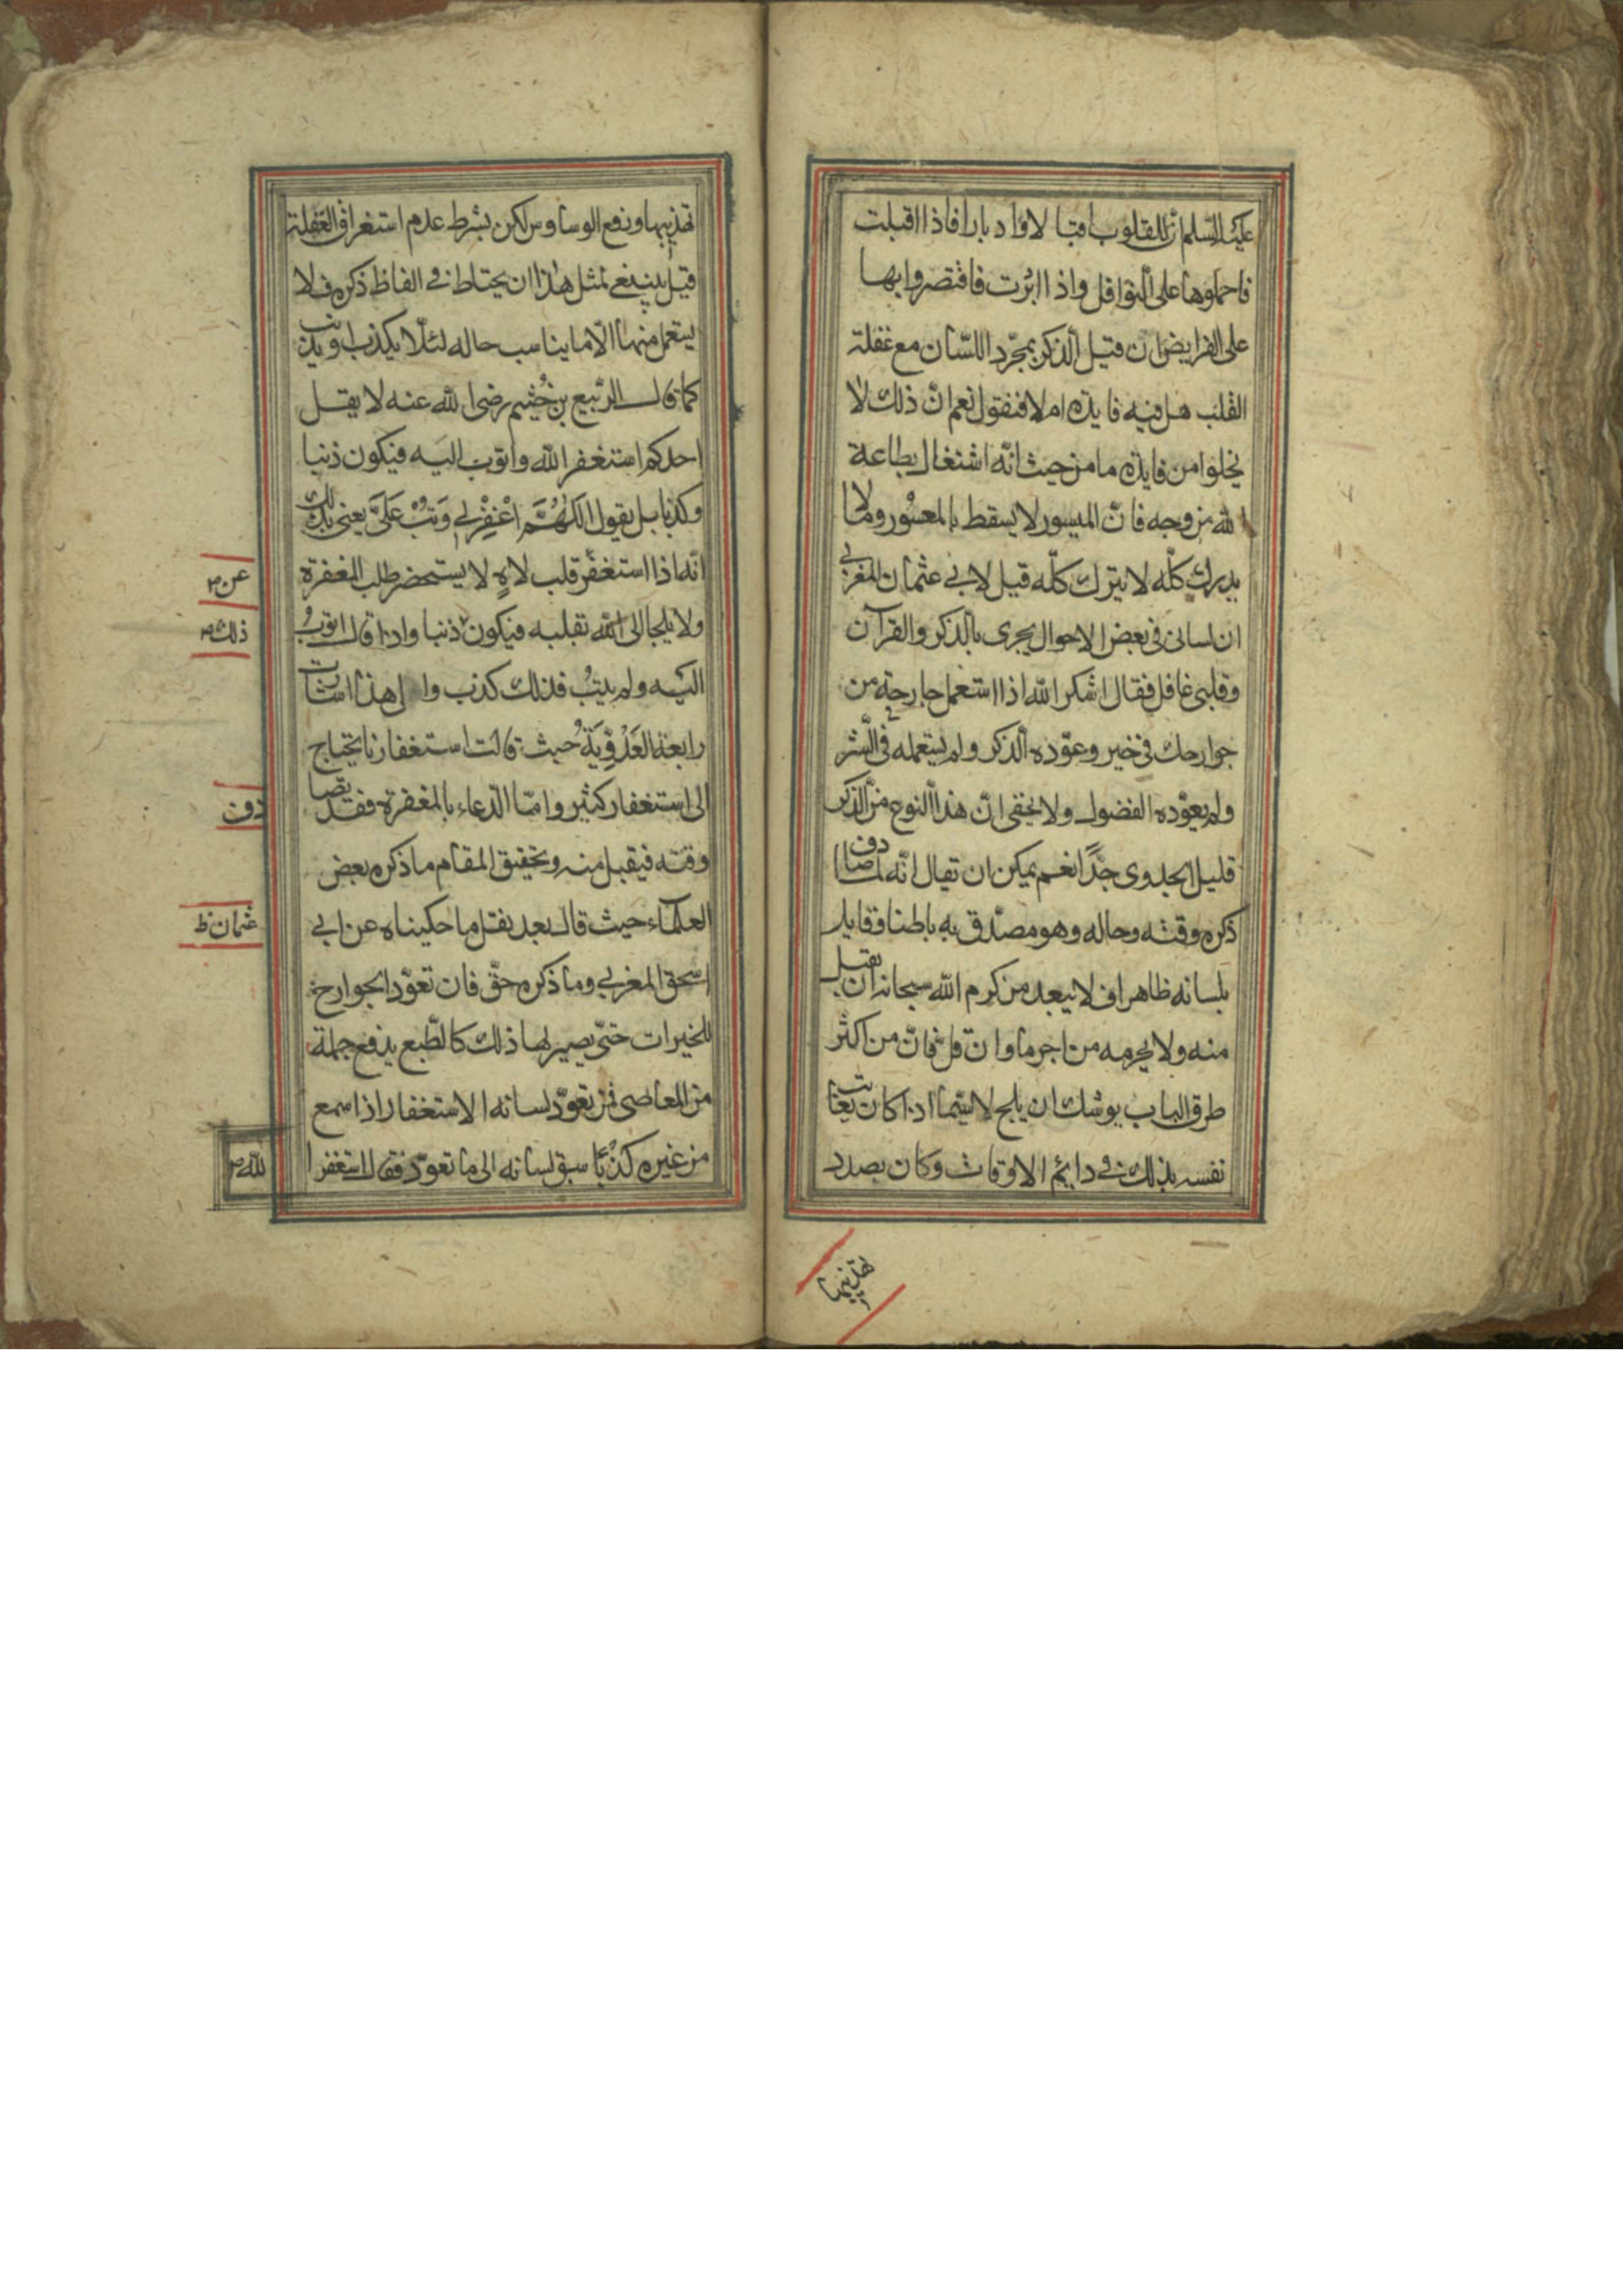 عليه السلم ان للقلوب اقبالا وادبارا فاذا اقبلت
فاحملوها على النوافل واذا ادبرت فاقتصروا بها
على الفرايض ان قيل الذكر بمجرّد اللسّان مع غفلة
القلب هل فيه فايده ام لا فنقول نعم انّ ذلك لا
يخلوا من فايدة ما من حيث انّه اشتغال بطاعة
الله من وجه فانّ الميسور لا يسقط بالمعسور وما لا
يدرك كلّه لا يترك كلّه قيل لابي عثمان المغربي
ان لساني في بعض الاحوال يجرى بالذكر والقرآن
وقلبي غافل فقال اشكر الله اذا استعمل جارحة من
جوارحك في خير وعوّده الذكر ولم يستعمله في الشر
ولم يعوّده الفضول ولا يخفى انّ هذا النوع من الذكر
قليل الجدوى جدًّا نعم يمكن ان يقال انّه لما صادف
ذكره وقته وحاله وهو مصدّق به باطنا وقايل
بلسانه ظاهرا فلا يبعد من كرم الله سبحانه ان يقبل
منه ولا يحرمه من اجر ما وان قل فانّ من اكثر
طرق الباب يوشك ان يلج لا سيّما اذا كان يعاتب
نفسه بذلك في دائم الاوقات وكان بصدد
تهذيبها
تهذيبها ودفع الوساوس لكن بشرط عدم استغراق الغفلة
قيل ينبغي لمثل هذا ان يحتاط في الفاظ ذكره فلا
يستعمل منها الّا ما يناسب حاله لئلّا يكذب او يذنب
كما قال الرّبيع بن خُثيم رضى الله عنه لا يقل
احدكم استغفر الله واتوب اليه فيكون ذنبا
وكذبا بل يقول اللهُمَّ اغْفِرْ لي وَتُبْ عَلَيَّ يعني بذلك
انّه اذا استغفر قلب لاهٍ لا يستحضر طلب المغفرة
عن
ولا يلجا الى الله بقلبه فيكون ذنبا واذا قال اتوبُ
ذلك
اليه ولم يتبْ فذلك كذب وا لى هذا اشارت
رابعة العَدْوِيَة حيث قالت استغفارنا يحتاج
الى استغفار كثير وامّا الدّعاء بالمغفرة فقد يصا
دف
وقته فيقبل منه وتحقيق المقام ما ذكره بعض
العلماء حيث قال بعد نقل ما حكيناه عن ابي
عثمان ظ
اسحق المغربي وما ذكره حقّ فان تعوّد الجوارح
للخيرات حتّى يصير لها ذلك كالطّبع يدفع جملة
من المعاصى فمن تعوّد لسانه الاستغفار اذا سمع
من غيره كذبًا سبق لسانه الى ما تعوّد فقال استغفر ا
لله